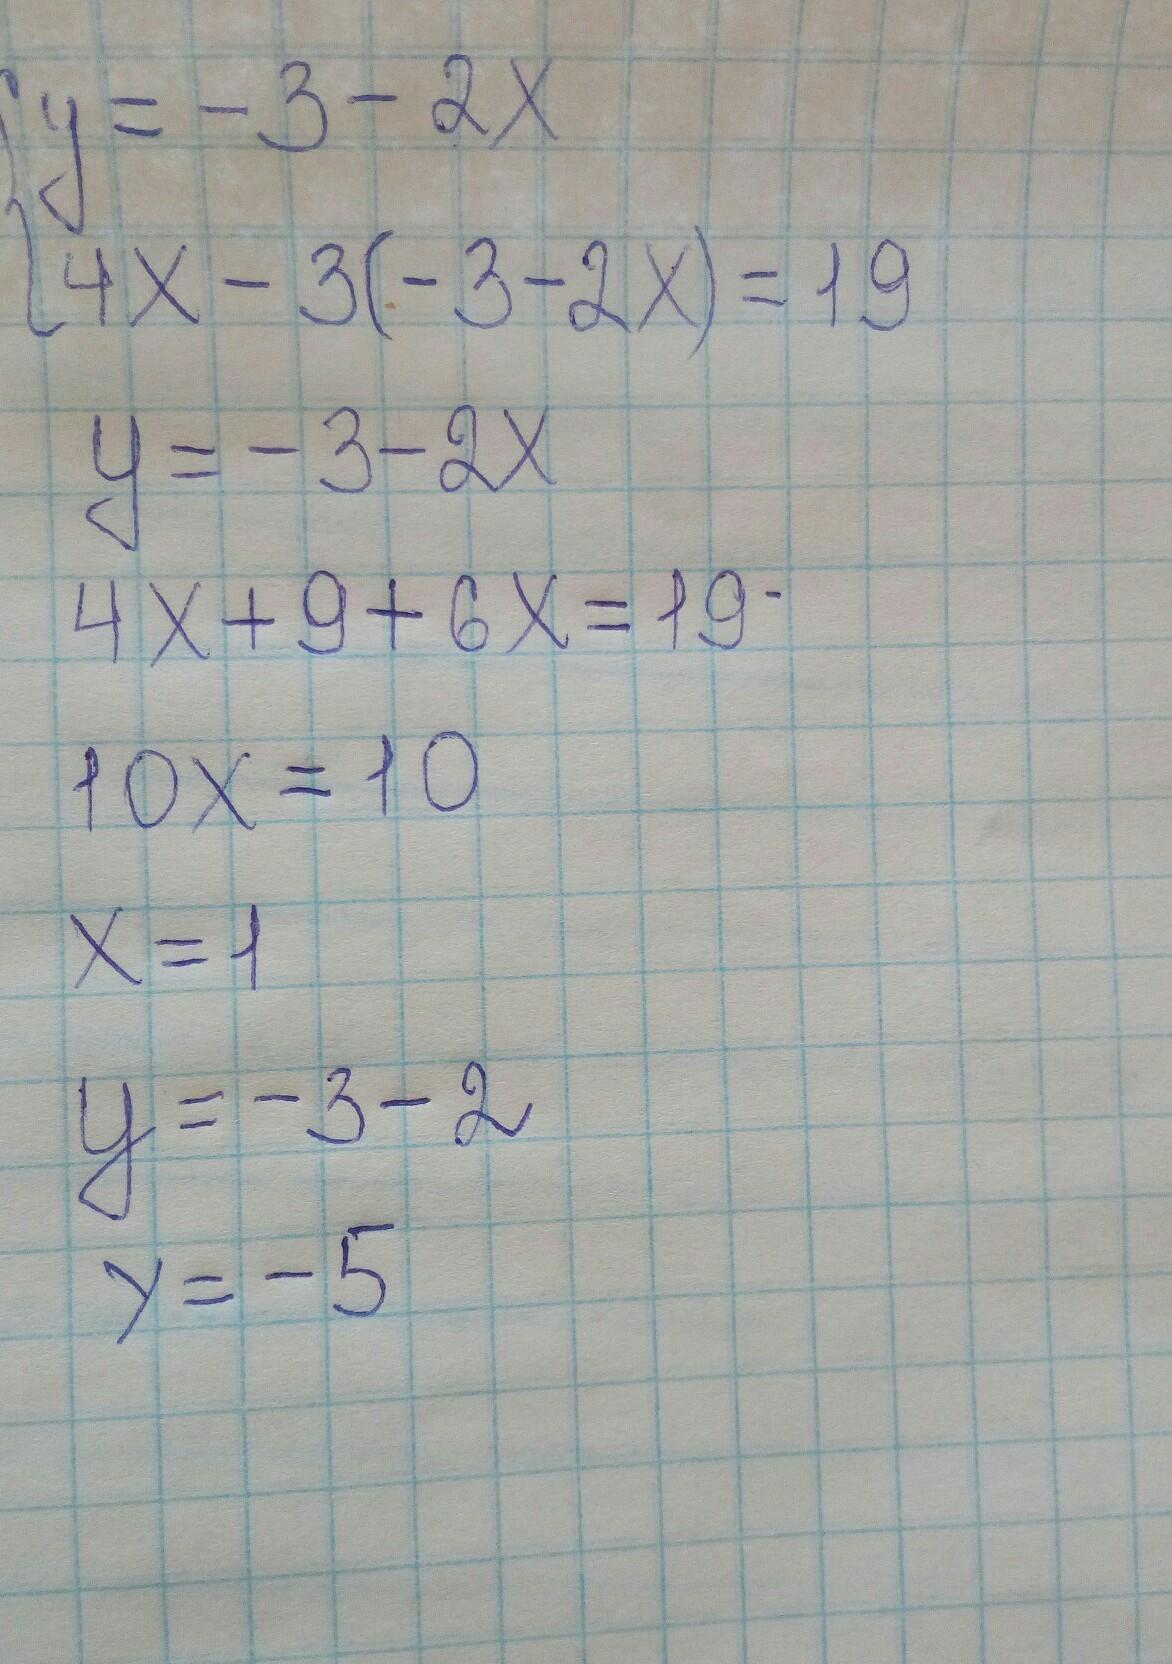 {y = -3 - 2x
4x - 3(-3 - 2x) = 19
y = -3 - 2x
4x + 9 + 6x = 19-
10x = 10
x = 1
y = -3 - 2
y = -5